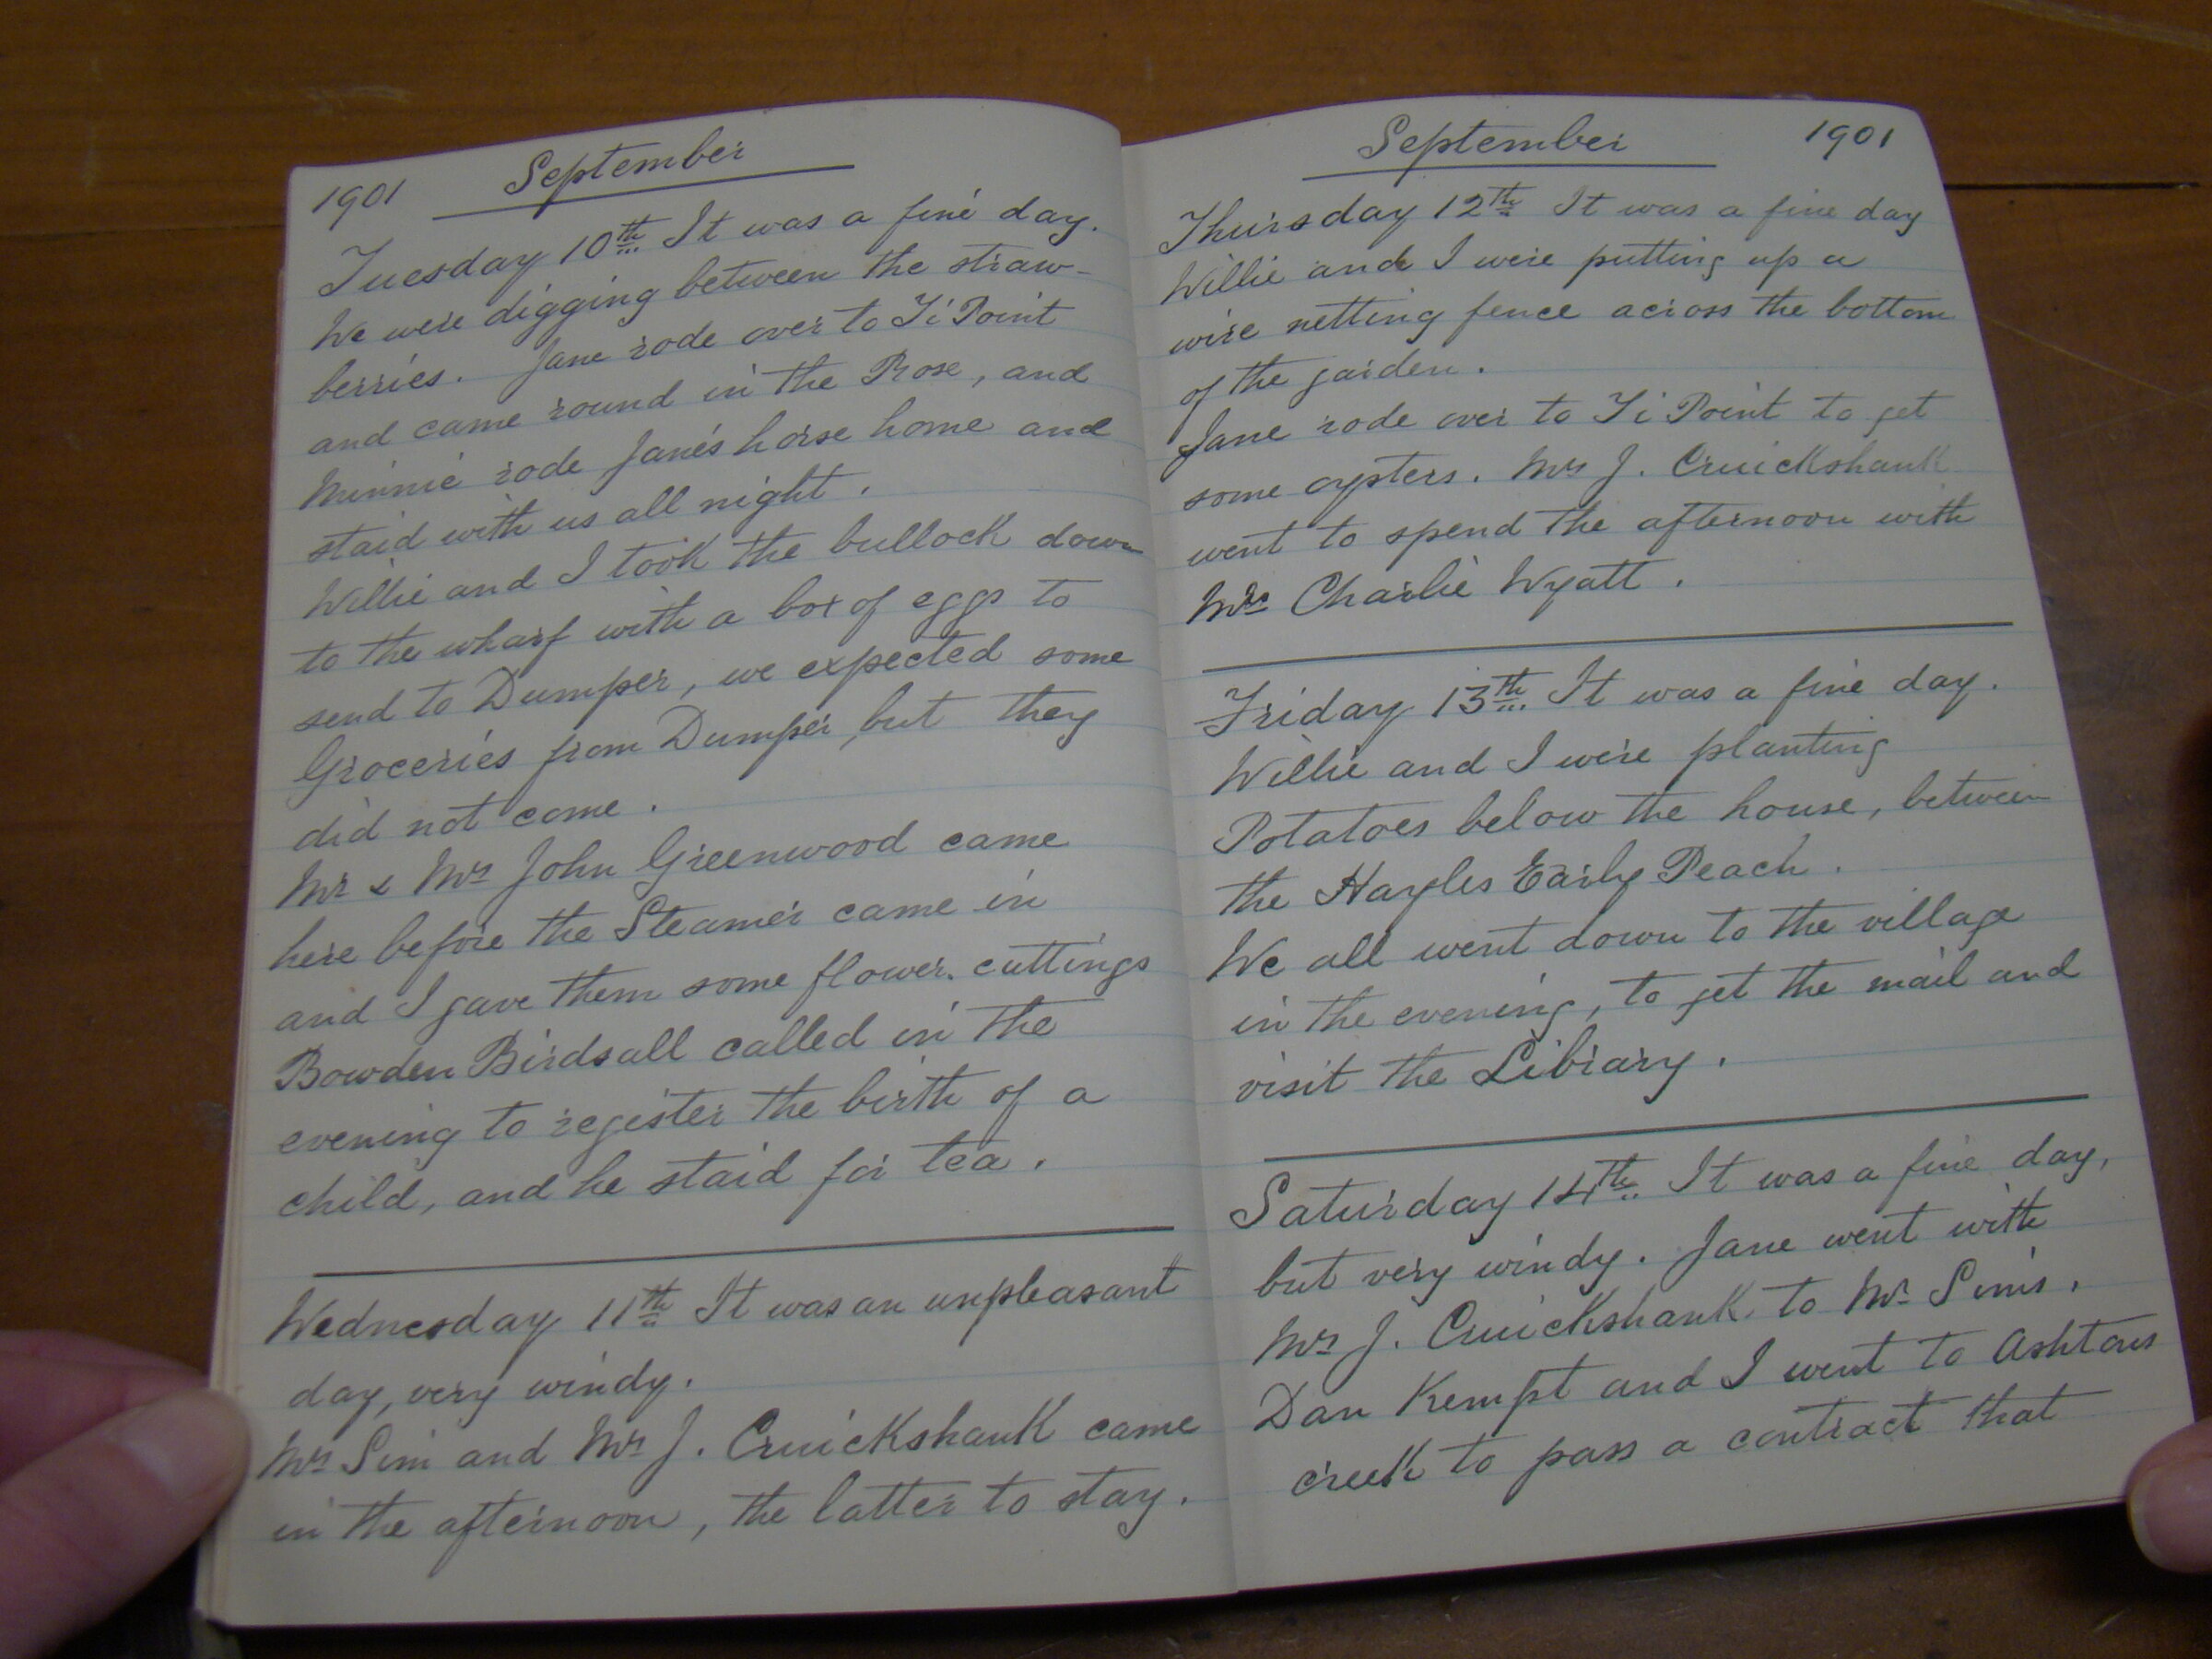 1901 September
Tuesday 10th It was a fine day.
We were digging between the straw-
berries. Jane rode over to Ti Point
and came round in the Rose, and
Minnie rode Jane's horse home and
staid with us all night.
Willie and I took the bullock down
to the wharf with a box of eggs to
send to Dumper, we expected some
Groceries from Dumper, but they
did not come.
Mr & Mrs John Greenwood came
here before the Steamer came in
and I gave them some flower cuttings
Bowden Birdsall called in the
evening to register the birth of a
child, and he staid for tea.
Wednesday 11th It was an unpleasant
day, very windy.
Mrs Sim and Mrs J. Cruickshank came
in the afternoon, the latter to stay.
September 1901
Thursday 12th It was a fine day
Willie and I were putting up a
wire netting fence across the bottom
of the garden.
Jane rode over to Ti Point to get
some oysters. Mrs J. Cruickshank
went to spend the afternoon with
Mrs Charlie Wyatt.
Friday 13th It was a fine day.
Willie and I were planting
Potatoes below the house, between
the Hayles Early Peach.
We all went down to the village
in the evening, to get the mail and
visit the Library.
Saturday 14th It was a fine day,
but very windy. Jane went with
Mrs J. Cruickshank to Mr Sims.
Dan Kempt and I went to Ashtons
creek to pass a contract that